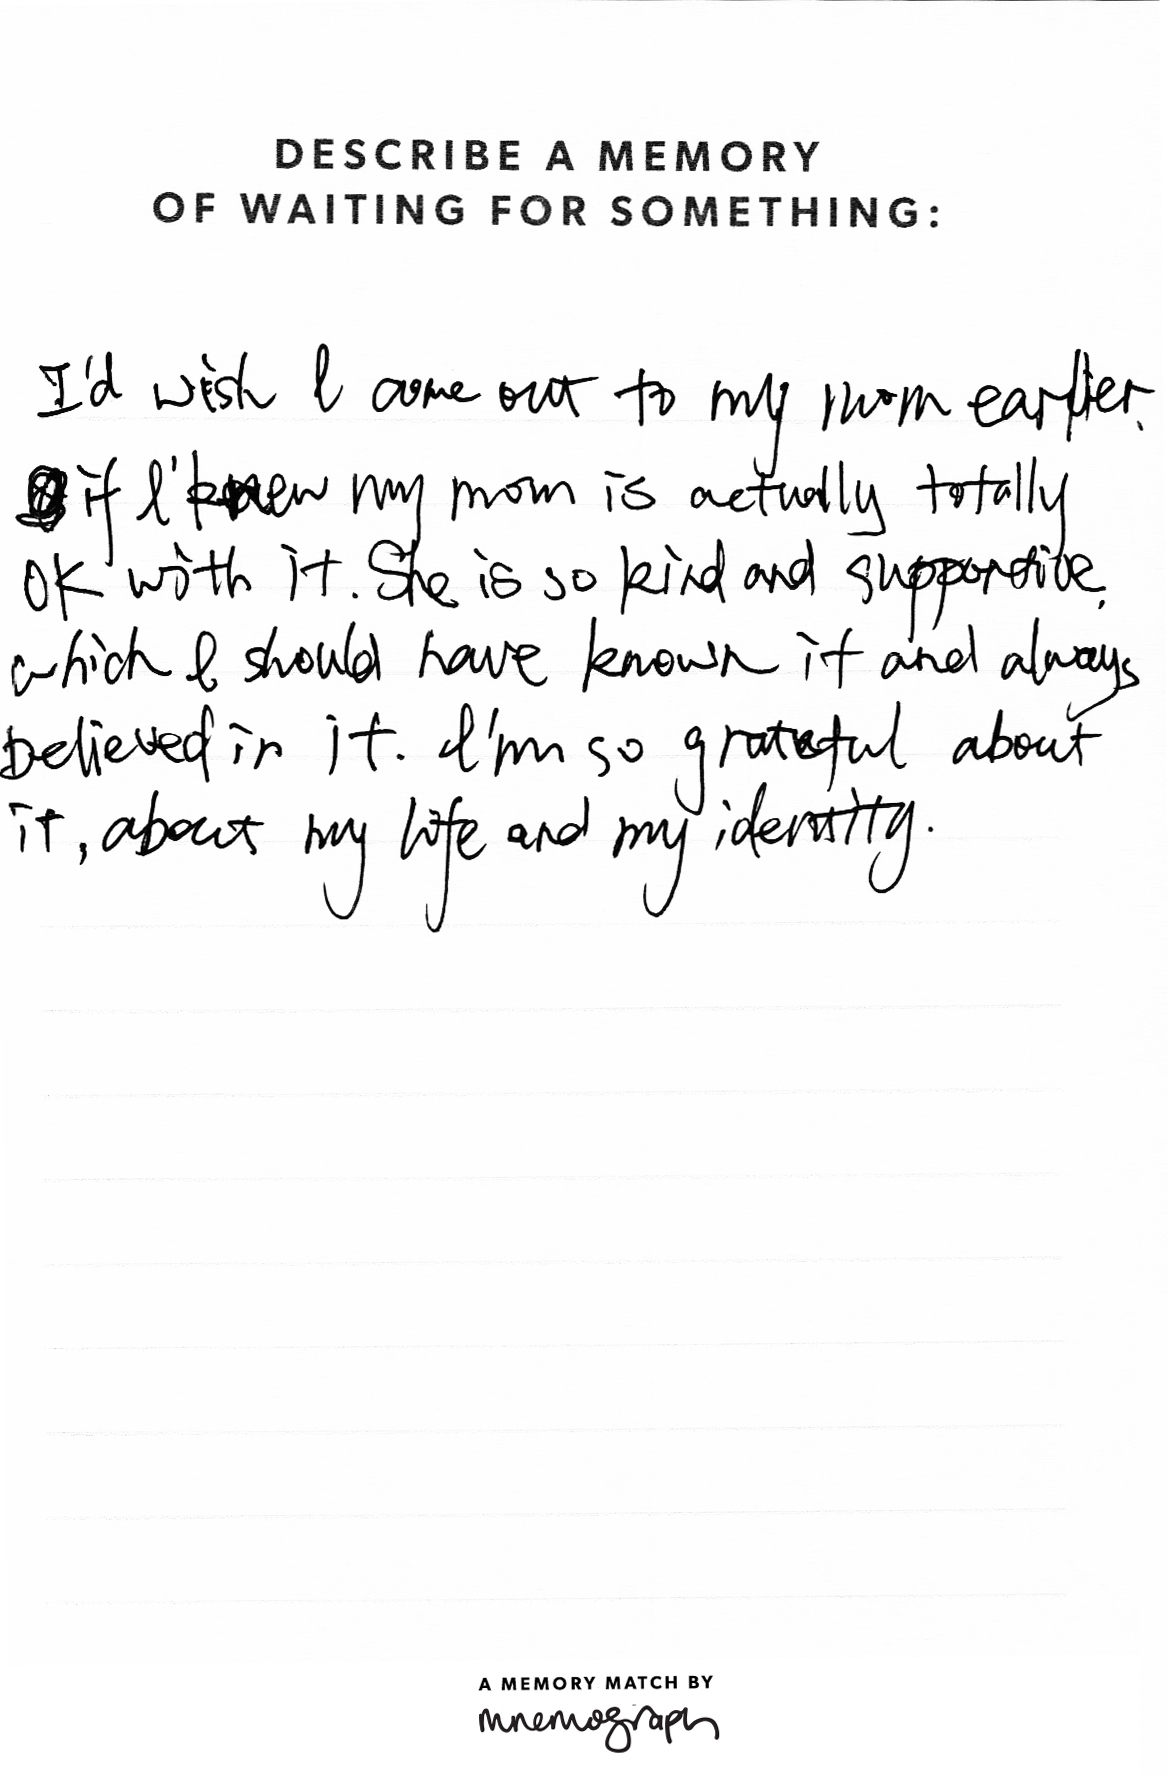 DESCRIBE A MEMORY
OF WAITING FOR SOMETHING:
I'd wish I come out to my mom earlier.
if I knew my mom is actually totally
OK with it. She is so kind and supportive,
which I should have known it and always
believed in it. I'm so grateful about
it, about my life and my identity.
A MEMORY MATCH BY
mnemograph